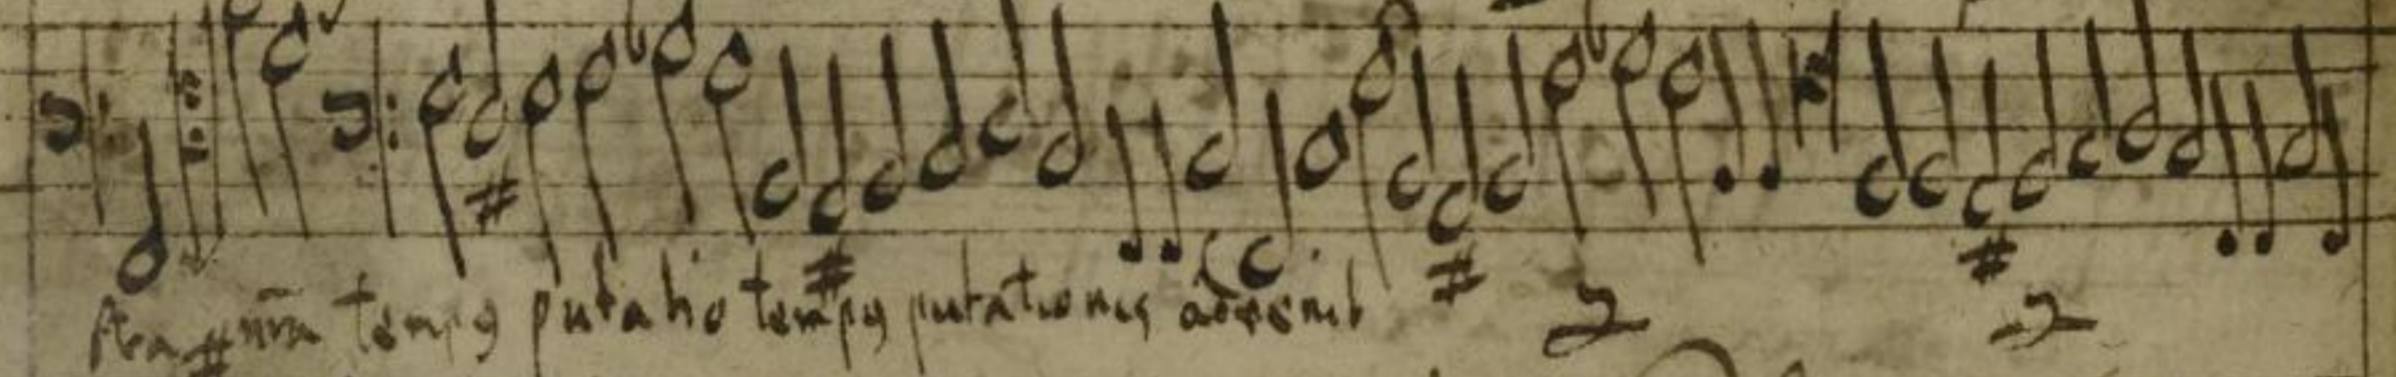 temp9 putatio temp9 putationis advenit